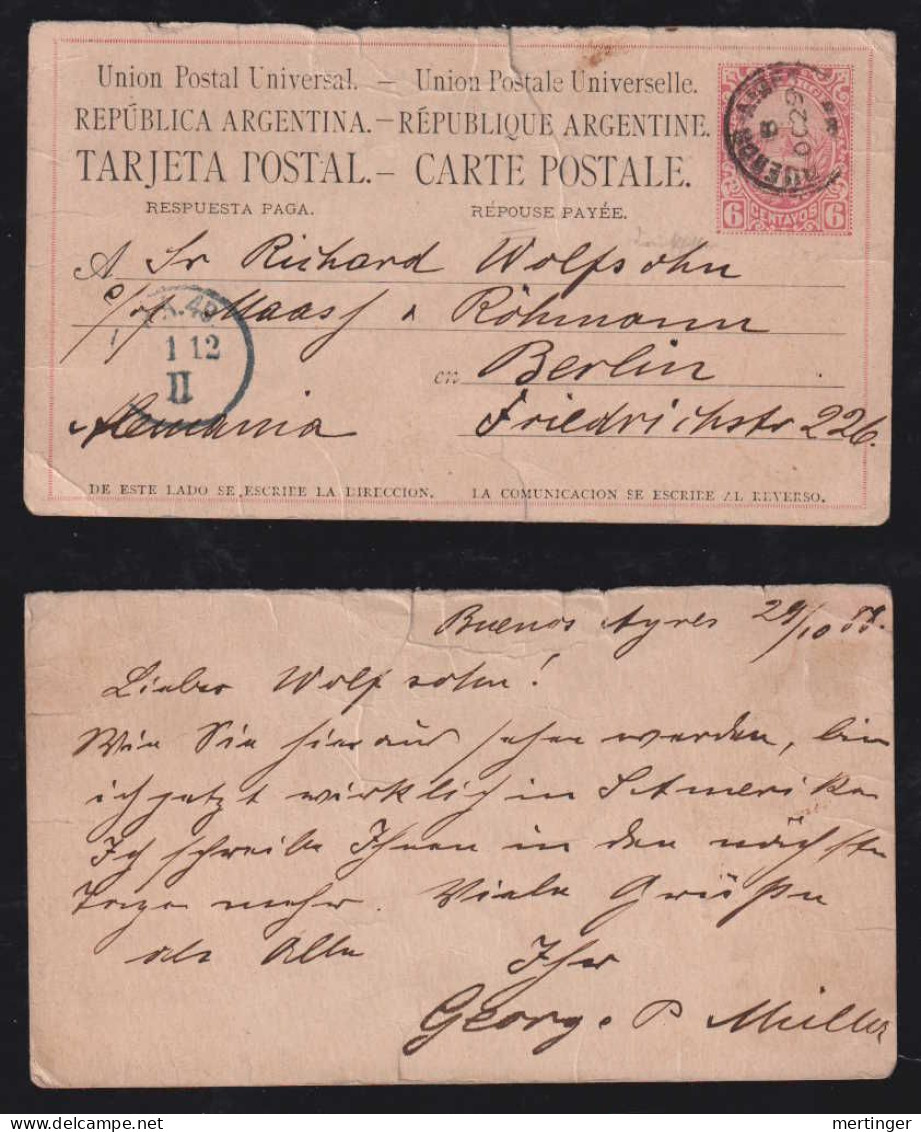 Union Postal Universal. — Union Postale Universelle.
REPÚBLICA ARGENTINA. — RÉPUBLIQUE ARGENTINE.
TARJETA POSTAL. — CARTE POSTALE.
RESPUESTA PAGA. RÉPOUSE PAYÉE.
6 CENTAVOS 6
OC 29
A Sr Richard Wolfsohn
c/of Maass & Röhmann
en Berlin
Alemania Friedrichstr 226.
1 12
II
DE ESTE LADO SE ESCRIBE LA DIRECCION. LA COMUNICACION SE ESCRIBE AL REVERSO.
Buenos Ayres 29/10 88.
Lieber Wolfsohn!
Wie Sie hieraus sehen werden, bin
ich jetzt wirklich in S Amerika
Ich schreibe Ihnen in den nächsten
Tagen mehr. Viele Grüße
an Alle Ihr
George P Müller
mertinger